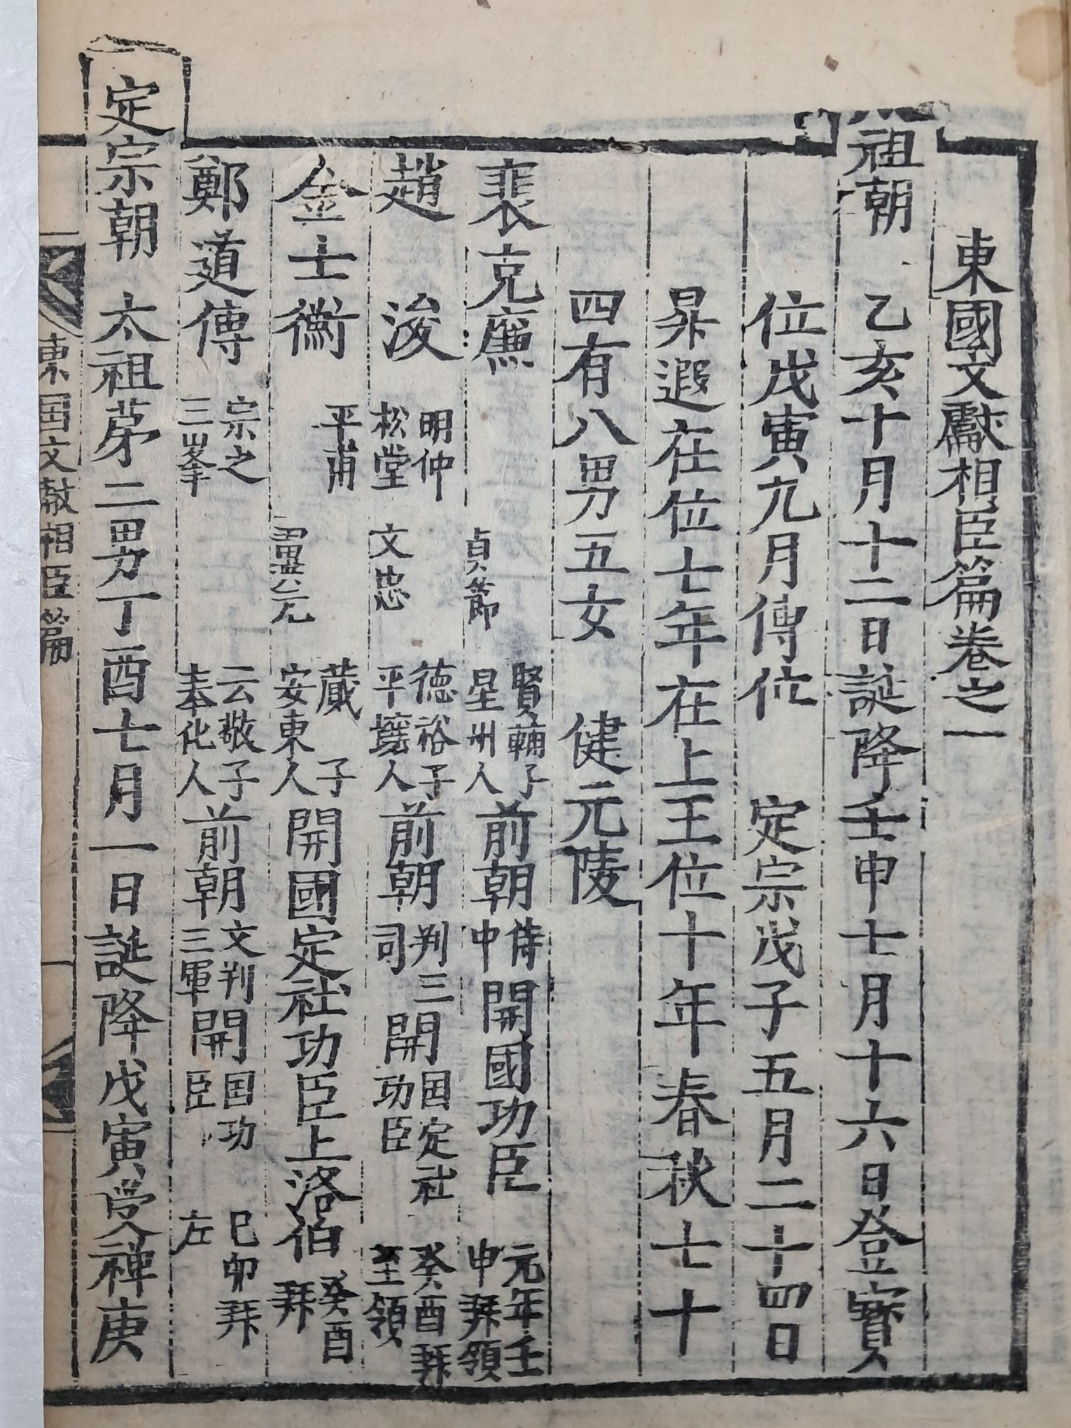 東國文獻相臣篇卷之一
祖朝 乙亥十月十二日誕降壬申七月十六日登寶
位戊寅九月傳位 定宗戊子五月二十四日
昇遐在位七年在上王位十年春秋七十
四有八男五女 健元陵
裵克廉 貞節 賢輔子 星州人 前朝侍中 開國功臣 元年壬申拜領
趙浚 明仲 松堂 文忠 德裕子 平壤人 前朝判三司 開国定社功臣 癸酉拜 至領
金士衡 平甫 翼元 蕆子 安東人 開國定社功臣上洛伯 癸酉拜
鄭道傳 宗之 三峯 云敬子 奉化人 前朝文判三軍 開国功臣 已卯拜 左
定宗朝 太祖苐二男丁酉七月一日誕降戊寅受禅庚
東国文献相臣篇